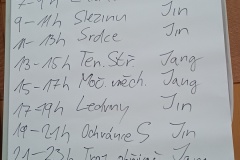 7-9h
9-11h Slezinu Jin
11-13h Srdce Jin
13-15h Ten. Stř. Jang
15-17h Moč. měch. Jang
17-19h Ledviny Jin
19-21h Ochránce S Jin
21-23h Jang